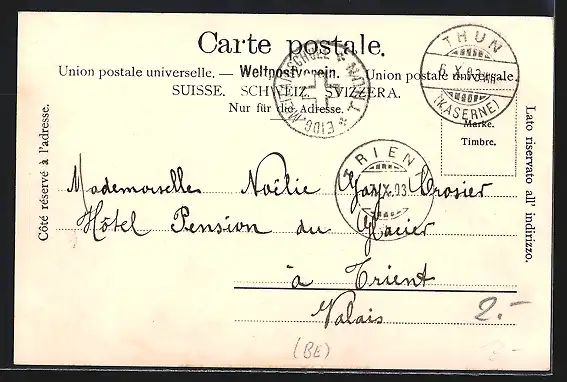 Carte postale.
Union postale universelle. — Weltpostverein. Union postale universale.
SUISSE. SCHWEIZ. SVIZZERA.
Nur für die Adresse.
Côté réservé à l'adresse.
Lato riservato all' indirizzo.
THUN
6.X.03
(KASERNE)
Marke.
Timbre.
TRIENT
X.03
Mademoiselle Noëlie Gay Crosier
Hôtel Pension du Glacier
à Trient
Valais
2.-
(BE)